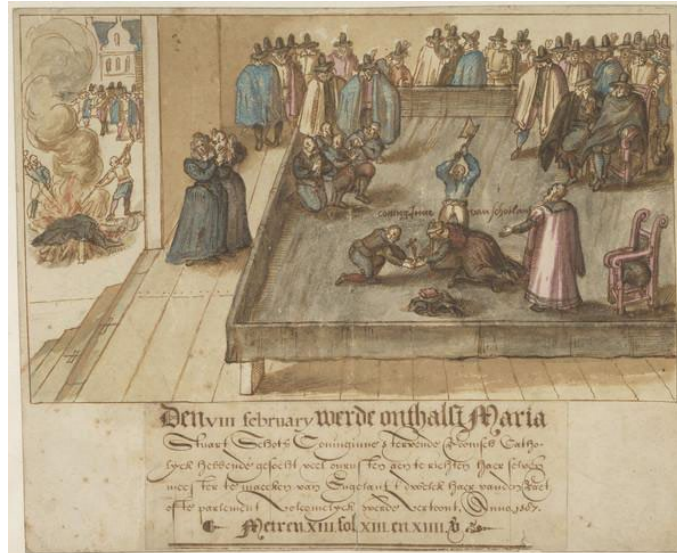 coninginne van schotlant
Den viii february werde onthalst Maria
Stuart Schots Coninginne stervende Roomsch Catho-
lyck hebbende gesocht veel onrusten aen te richten haer selven
meester te maecken van Engelant t dwelck haer vanden Raet
ofte parlement volcomelyck werde vertoont, Anno 1587.
Meteren XIII fol XIII en XIIII